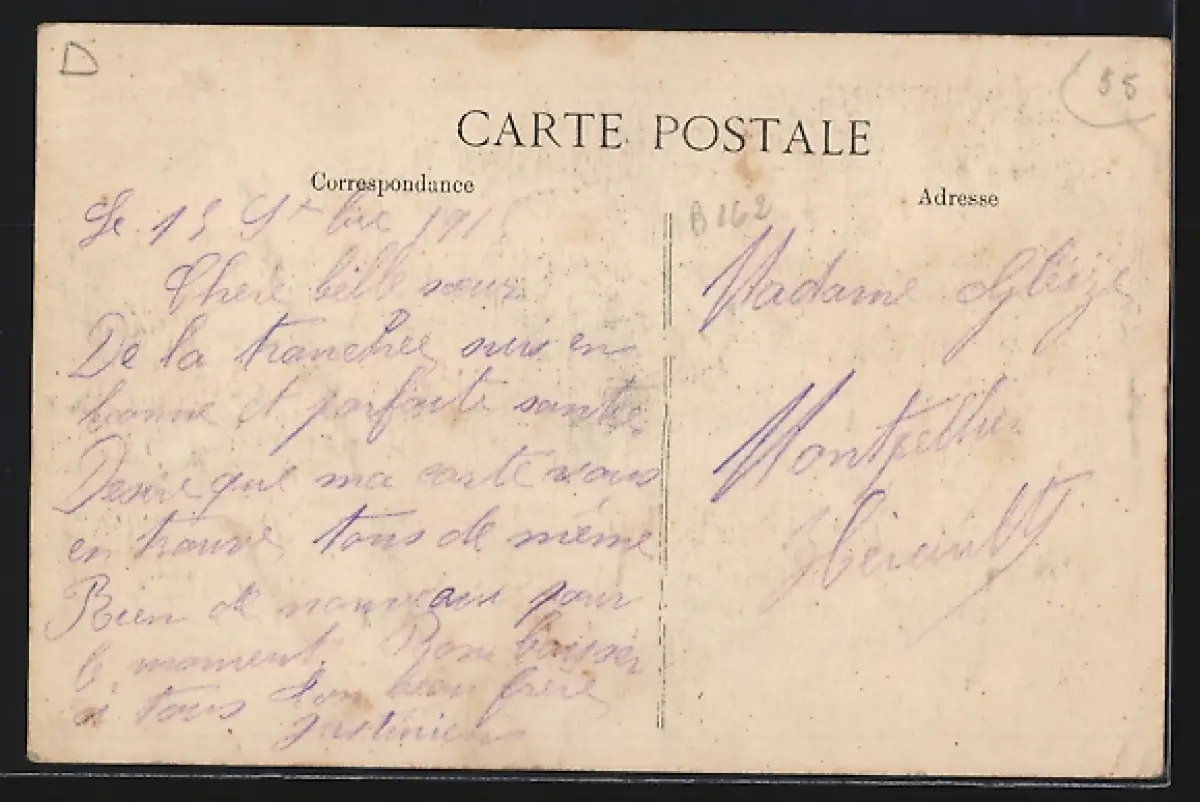 D
55
CARTE POSTALE
Correspondance
Adresse
B 162
Le 15 191
Chere belle sœur
De la tranchée suis en
bonne et parfaite santée
Désire que ma carte vous
en trouve tous de même
Rien de nouveau pour
le moment. Bon baiser
à tous ton beau frère
Madame Gleize
Montpellier
Hérault